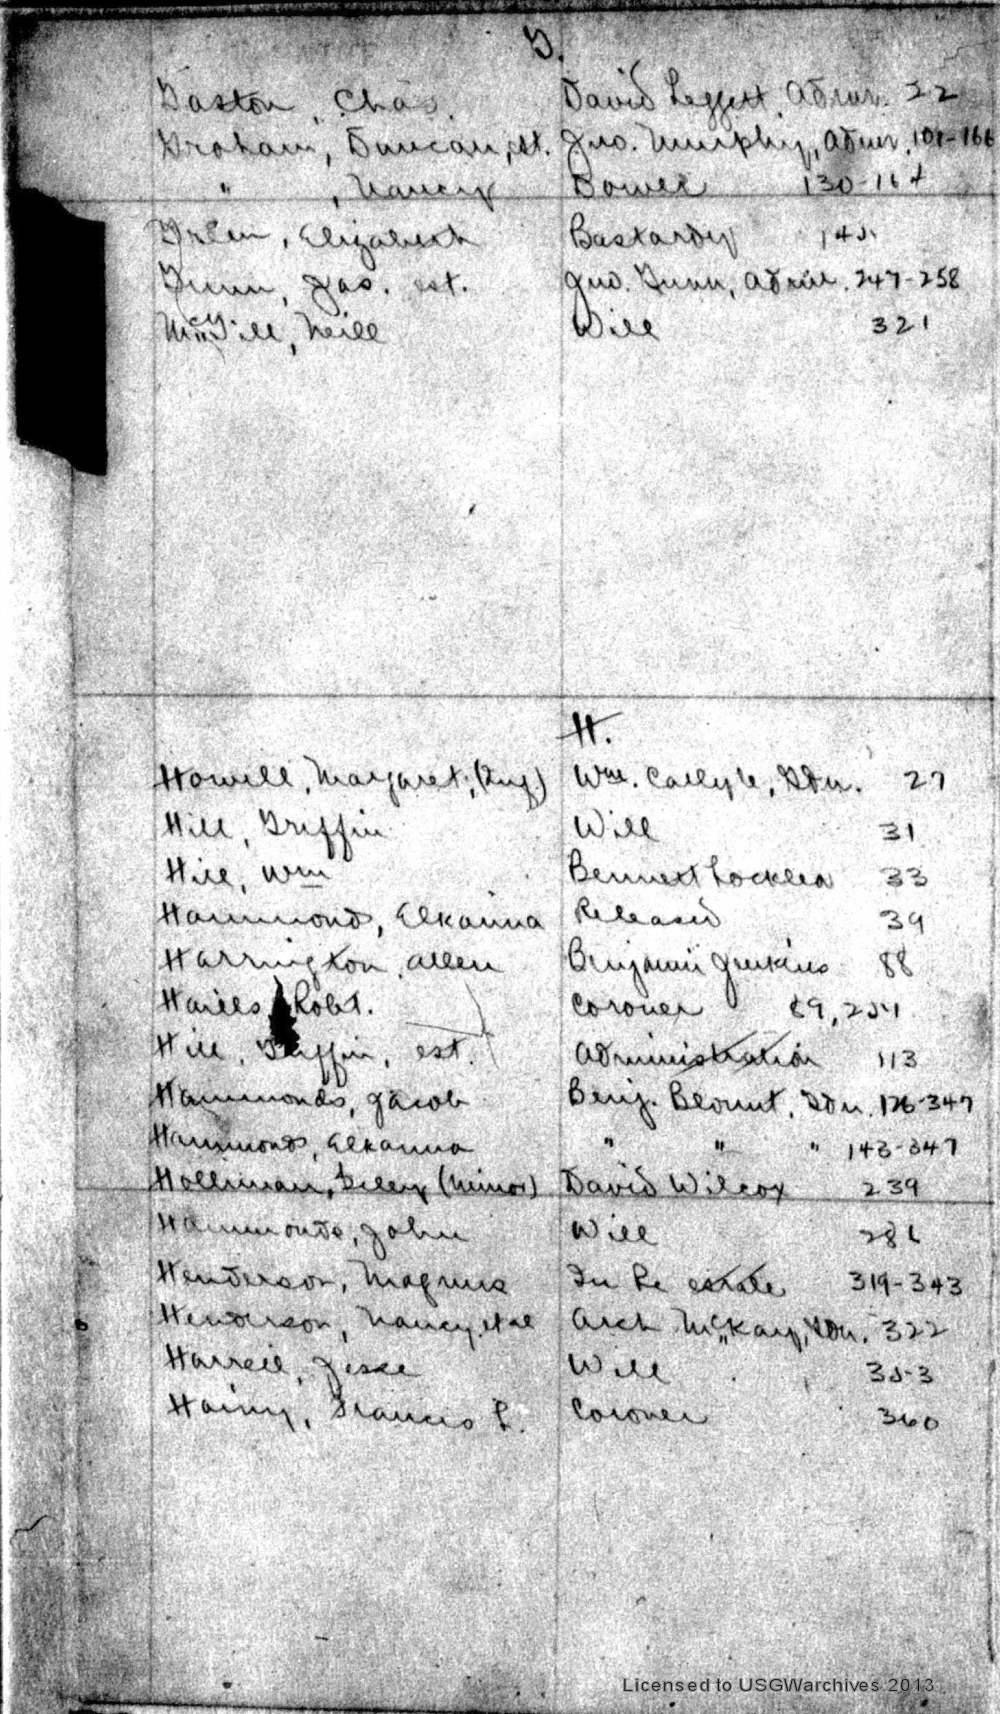 G.
Gaston, Chas. David Leggett, Admr. 22
Graham, Duncan, est. Jno. Murphy, Admr. 101-166
" , Nancy Dower 130-164
Green, Elizabeth Bastardy
Gunn, Jas. est. Jno. Gunn, Admr. 247-258
Will 321
H.
Howell, Margaret, Wm. Carlyle, Gdn. 27
Hill, Griffin Will 31
Hill, Wm Bennett Locklea 33
Hammond, Elkanna Released 39
Harrington, Allen Benjamin Jenkins 88
Robt. Coroner
Hill, Griffin, est. Administration 113
Hammonds, Jacob Benj. Blount, Gdn. 126-347
Hammonds, Elkanna " " " 143-347
Holliman, (Minor) David Wilcox 239
Hammonds, John Will
Henderson, Magnus In Re estate 319-343
Henderson, Nancy et al Arch McKay, Gdn. 322
Harrell, Jesse Will 353
Francis L. Coroner 360
Licensed to USGWarchives 2013